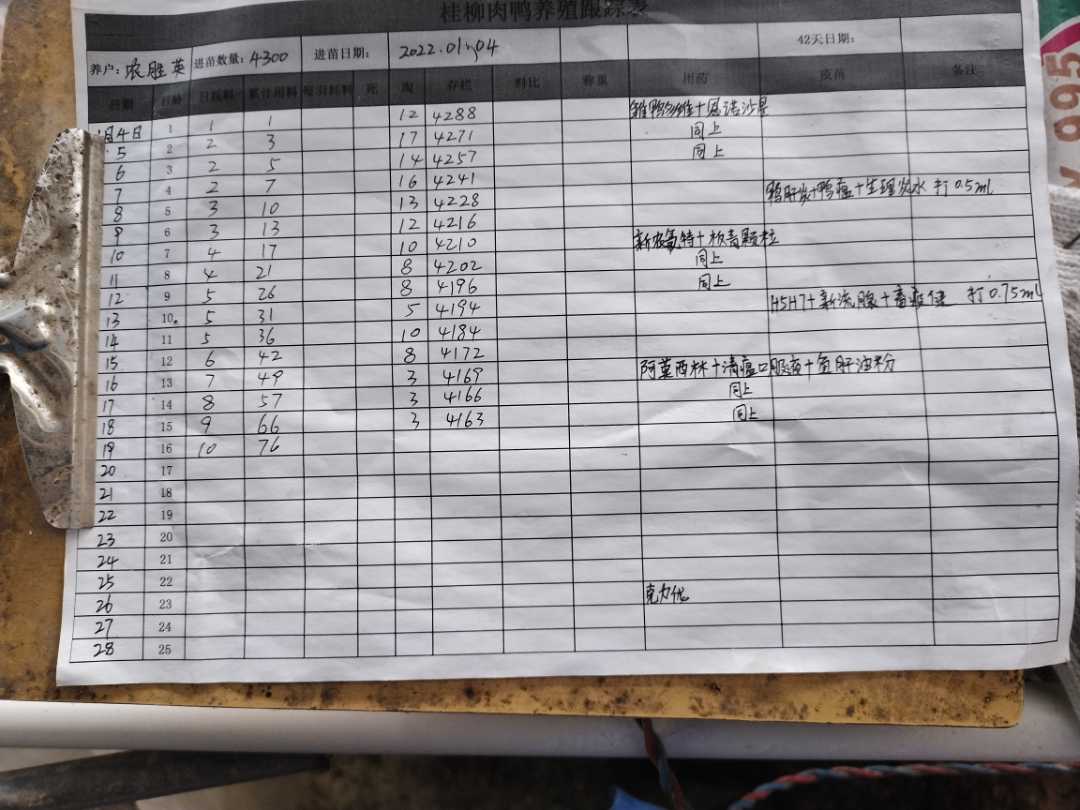 桂柳肉鸭养殖跟踪表
养户：农胜英 进苗数量：4300 进苗日期： 2022.01.04 42天日期：
日期 日龄 日耗料 累计用料 每羽耗料 死 淘 存栏 料比 称重 用药 疫苗 备注
月4日 1 1 1 12 4288 雏鸭多维+恩诺沙星
5 2 2 3 17 4271 同上
6 3 2 5 14 4257 同上
7 4 2 7 16 4241
8 5 3 10 13 4228 鸭肝炎+鸭瘟+生理盐水 打0.5ml
9 6 3 13 12 4216
10 7 4 17 10 4210 新农氟特+板青颗粒
11 8 4 21 8 4202 同上
12 9 5 26 8 4196 同上
13 10 5 31 5 4194 H5H7+新流腺+ 打0.75ml
14 11 5 36 10 4184
15 12 6 42 8 4172
16 13 7 49 3 4169 阿莫西林+清瘟口服液+鱼肝油粉
17 14 8 57 3 4166 同上
18 15 9 66 3 4163 同上
19 16 10 76
20 17
21 18
22 19
23 20
24 21
25 22
26 23 克力优
27 24
28 25
995